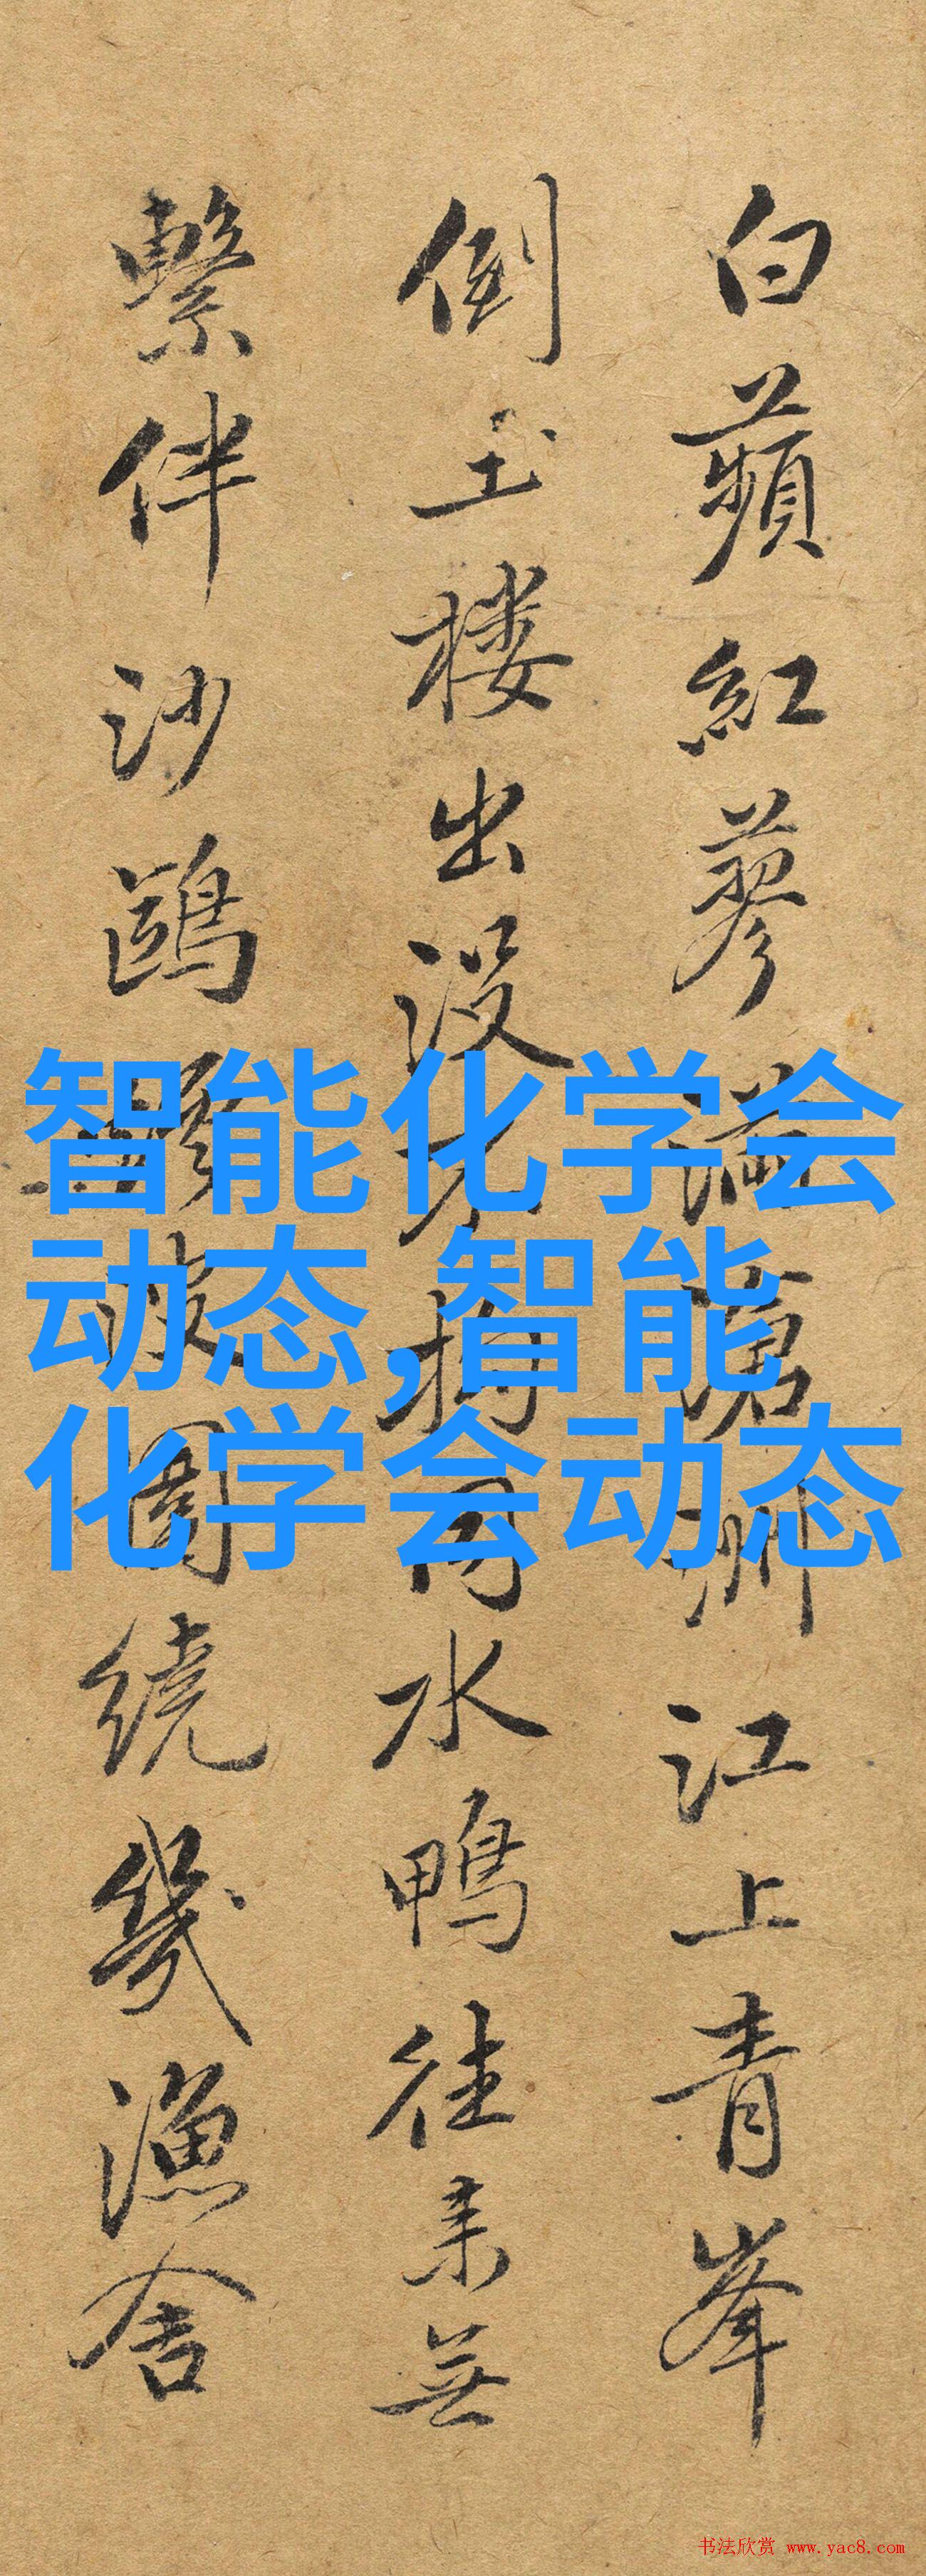 白蘋紅蓼滿滄洲江上青峯
倒玉楼出没拘同水鴨往来無
繫伴沙鷗波圍繞幾漁舍
智能化学会
动态,智能
化学会动态
书法欣赏 www.yac8.com